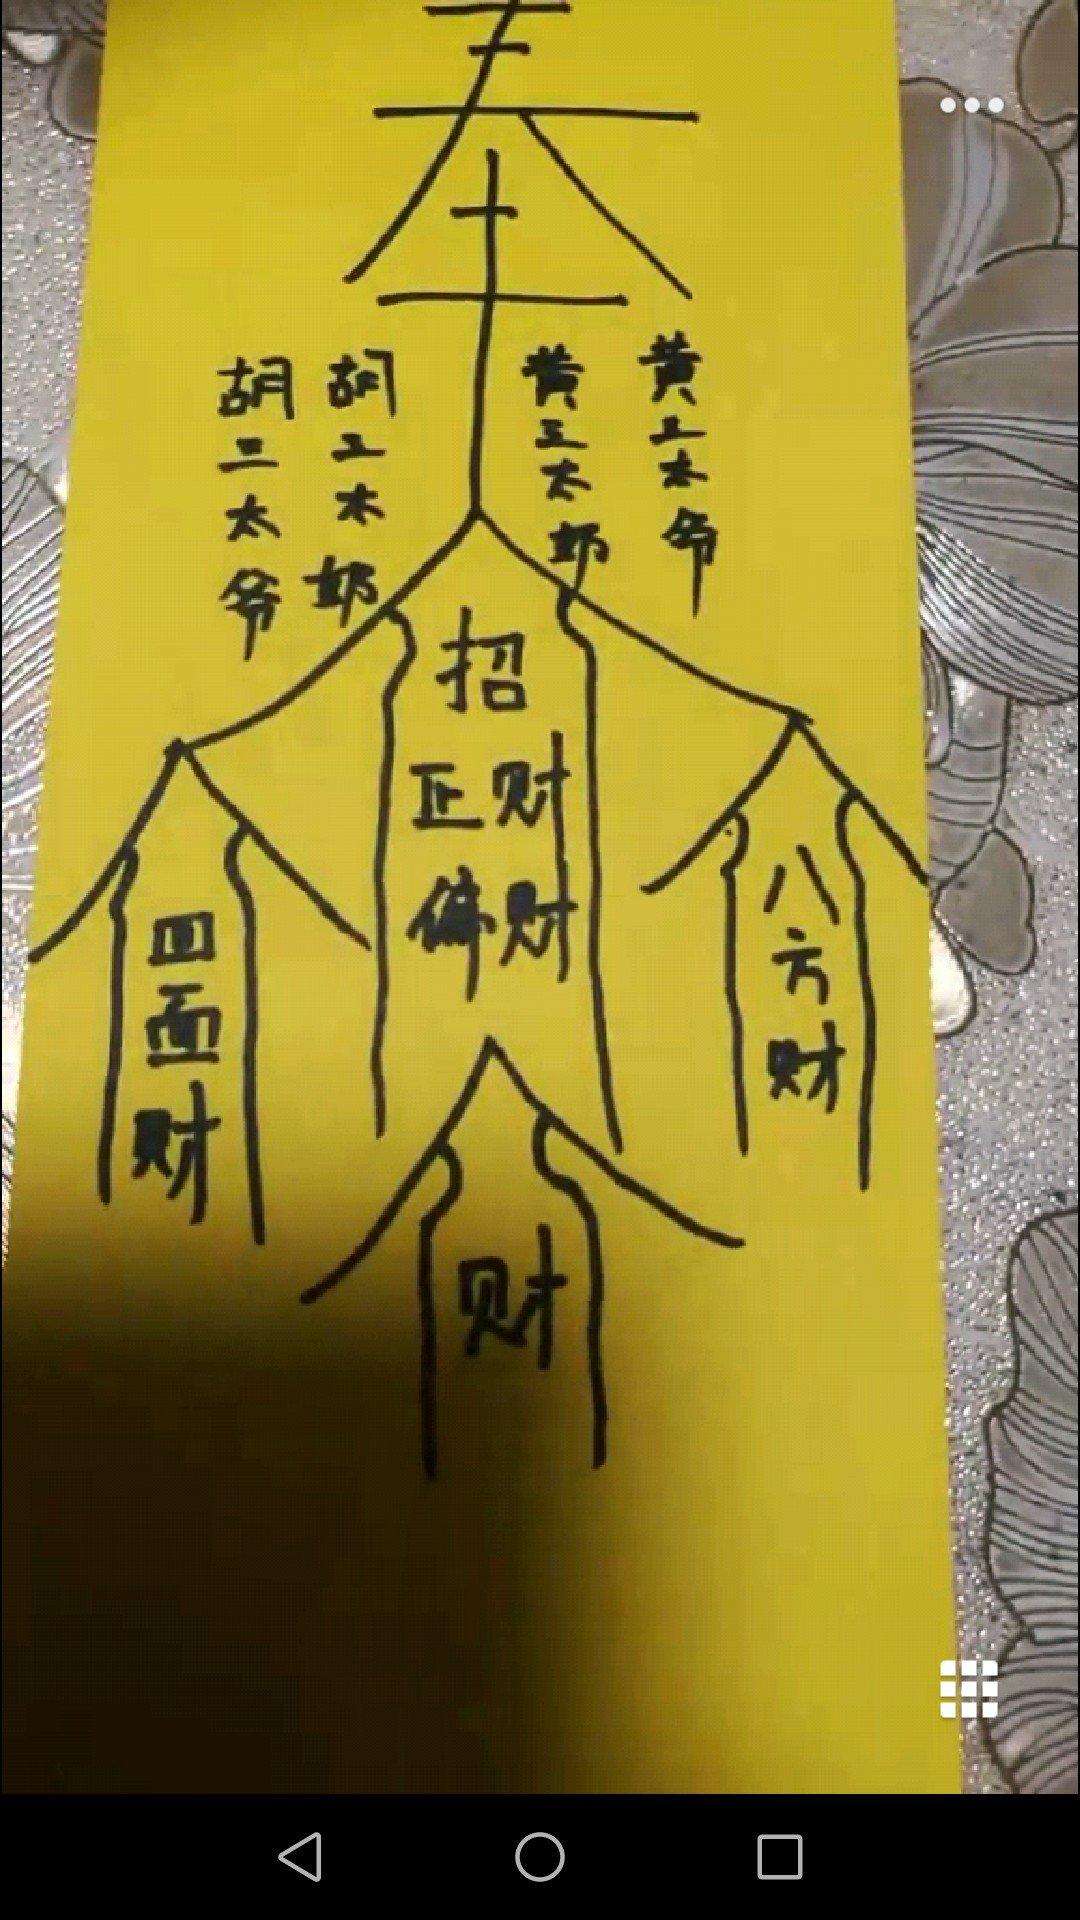 奉
胡三太爷
胡三太奶
黄三太奶
黄三太爷
招
正财
偏财
四面财
八方财
财